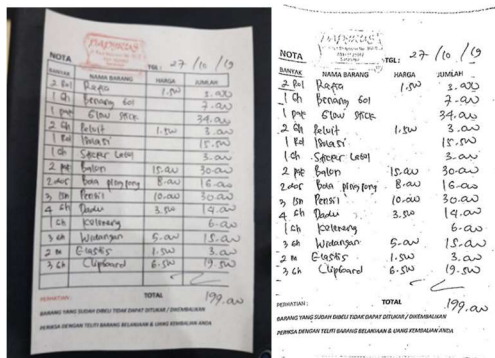 NOTA TGL: 27/10/19
BANYAK NAMA BARANG HARGA JUMLAH
2 Rol 1.500 3.000
1 Gh Benang bol 7.000
1 Glow Stick 34.000
2 Gh Peluit 1.500 3.000
1 Rol Isolasi 15.500
1 Gh Label 3.000
2 Balon 15.000 30.000
2 dos Bola ping pong 8.000 16.000
3 lsn Pensil 10.000 30.000
4 Gh Dadu 3.500 14.000
1 Gh Kelereng 6.000
3 Gh 5.000 15.000
2 m Elastis 1.500 3.000
3 Gh Clipboard 6.500 19.500
PERHATIAN: TOTAL 199.000
BARANG YANG SUDAH DIBELI TIDAK DAPAT DITUKAR / DIKEMBALIKAN
PERIKSA DENGAN TELITI BARANG BELANJAAN & UANG KEMBALIAN ANDA
NOTA TGL: 27/10/19
BANYAK NAMA BARANG HARGA JUMLAH
2 Rol 1.500 3.000
1 Gh Benang bol 7.000
1 Glow Stick 34.000
2 Gh Peluit 1.500 3.000
1 Rol Isolasi 15.500
1 Gh Label 3.000
2 Balon 15.000 30.000
2 dos Bola ping pong 8.000 16.000
3 lsn Pensil 10.000 30.000
4 Gh Dadu 3.500 14.000
1 Gh Kelereng 6.000
3 Gh 5.000 15.000
2 m Elastis 1.500 3.000
3 Gh Clipboard 6.500 19.500
PERHATIAN: TOTAL 199.000
BARANG YANG SUDAH DIBELI TIDAK DAPAT DITUKAR / DIKEMBALIKAN
PERIKSA DENGAN TELITI BARANG BELANJAAN & UANG KEMBALIAN ANDA